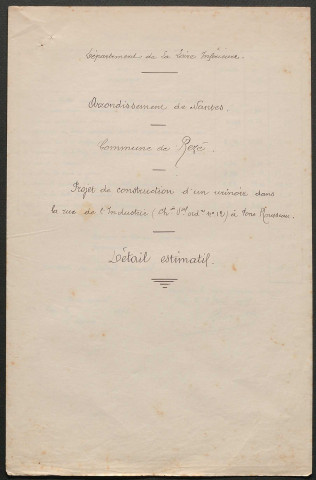 Département de la Loire Inférieure.
Arrondissement de Nantes.
Commune de Rezé.
Projet de construction d'un urinoir dans
la rue de l'Industrie (Ch.in V.al ord.re n° 12) à Pont Rousseau.
Détail estimatif.